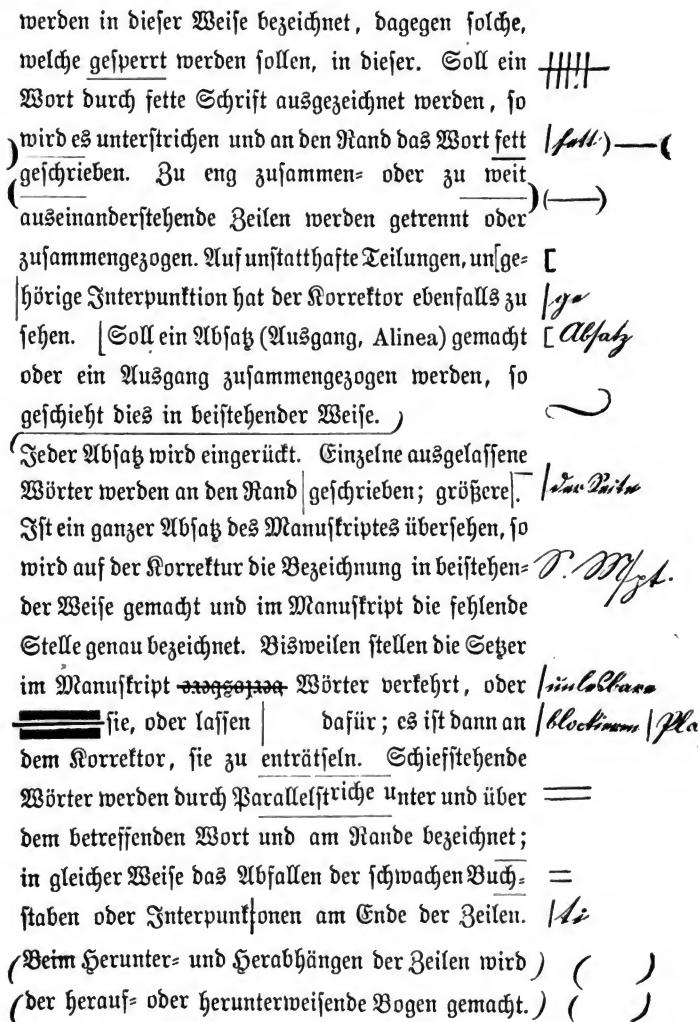 werden in dieſer Weiſe bezeichnet, dagegen ſolche,
welche geſperrt werden ſollen, in dieſer. Soll ein
Wort durch fette Schrift ausgezeichnet werden, ſo
wird es unterſtrichen und an den Rand das Wort fett |fett.)—(
geſchrieben. Zu eng zuſammen= oder zu weit (—)
auseinanderſtehende Zeilen werden getrennt oder
zuſammengezogen. Auf unſtatthafte Teilungen, un[ge= [
|hörige Interpunktion hat der Korrektor ebenfalls zu |ge
ſehen. [Soll ein Abſatz (Ausgang, Alinea) gemacht [Abſatz
oder ein Ausgang zuſammengezogen werden, ſo
geſchieht dies in beiſtehender Weiſe.
Jeder Abſatz wird eingerückt. Einzelne ausgelaſſene
Wörter werden an den Rand|geſchrieben; größere|. |der Seite
Iſt ein ganzer Abſatz des Manuſkriptes überſehen, ſo
wird auf der Korrektur die Bezeichnung in beiſtehen= S. Mſpt.
der Weiſe gemacht und im Manuſkript die fehlende
Stelle genau bezeichnet. Bisweilen ſtellen die Setzer
im Manuſkript Wörter verkehrt, oder |unlesbare
ſie, oder laſſen | dafür; es iſt dann an |blockieren |Pla
dem Korrektor, ſie zu enträtſeln. Schiefſtehende
Wörter werden durch Parallelſtriche unter und über =
dem betreffenden Wort und am Rande bezeichnet;
in gleicher Weiſe das Abfallen der ſchwachen Buch= =
ſtaben oder Interpunk|onen am Ende der Zeilen. |ti
(Beim Herunter= und Herabhängen der Zeilen wird) ( )
(der herauf= oder herunterweiſende Bogen gemacht.) ( )